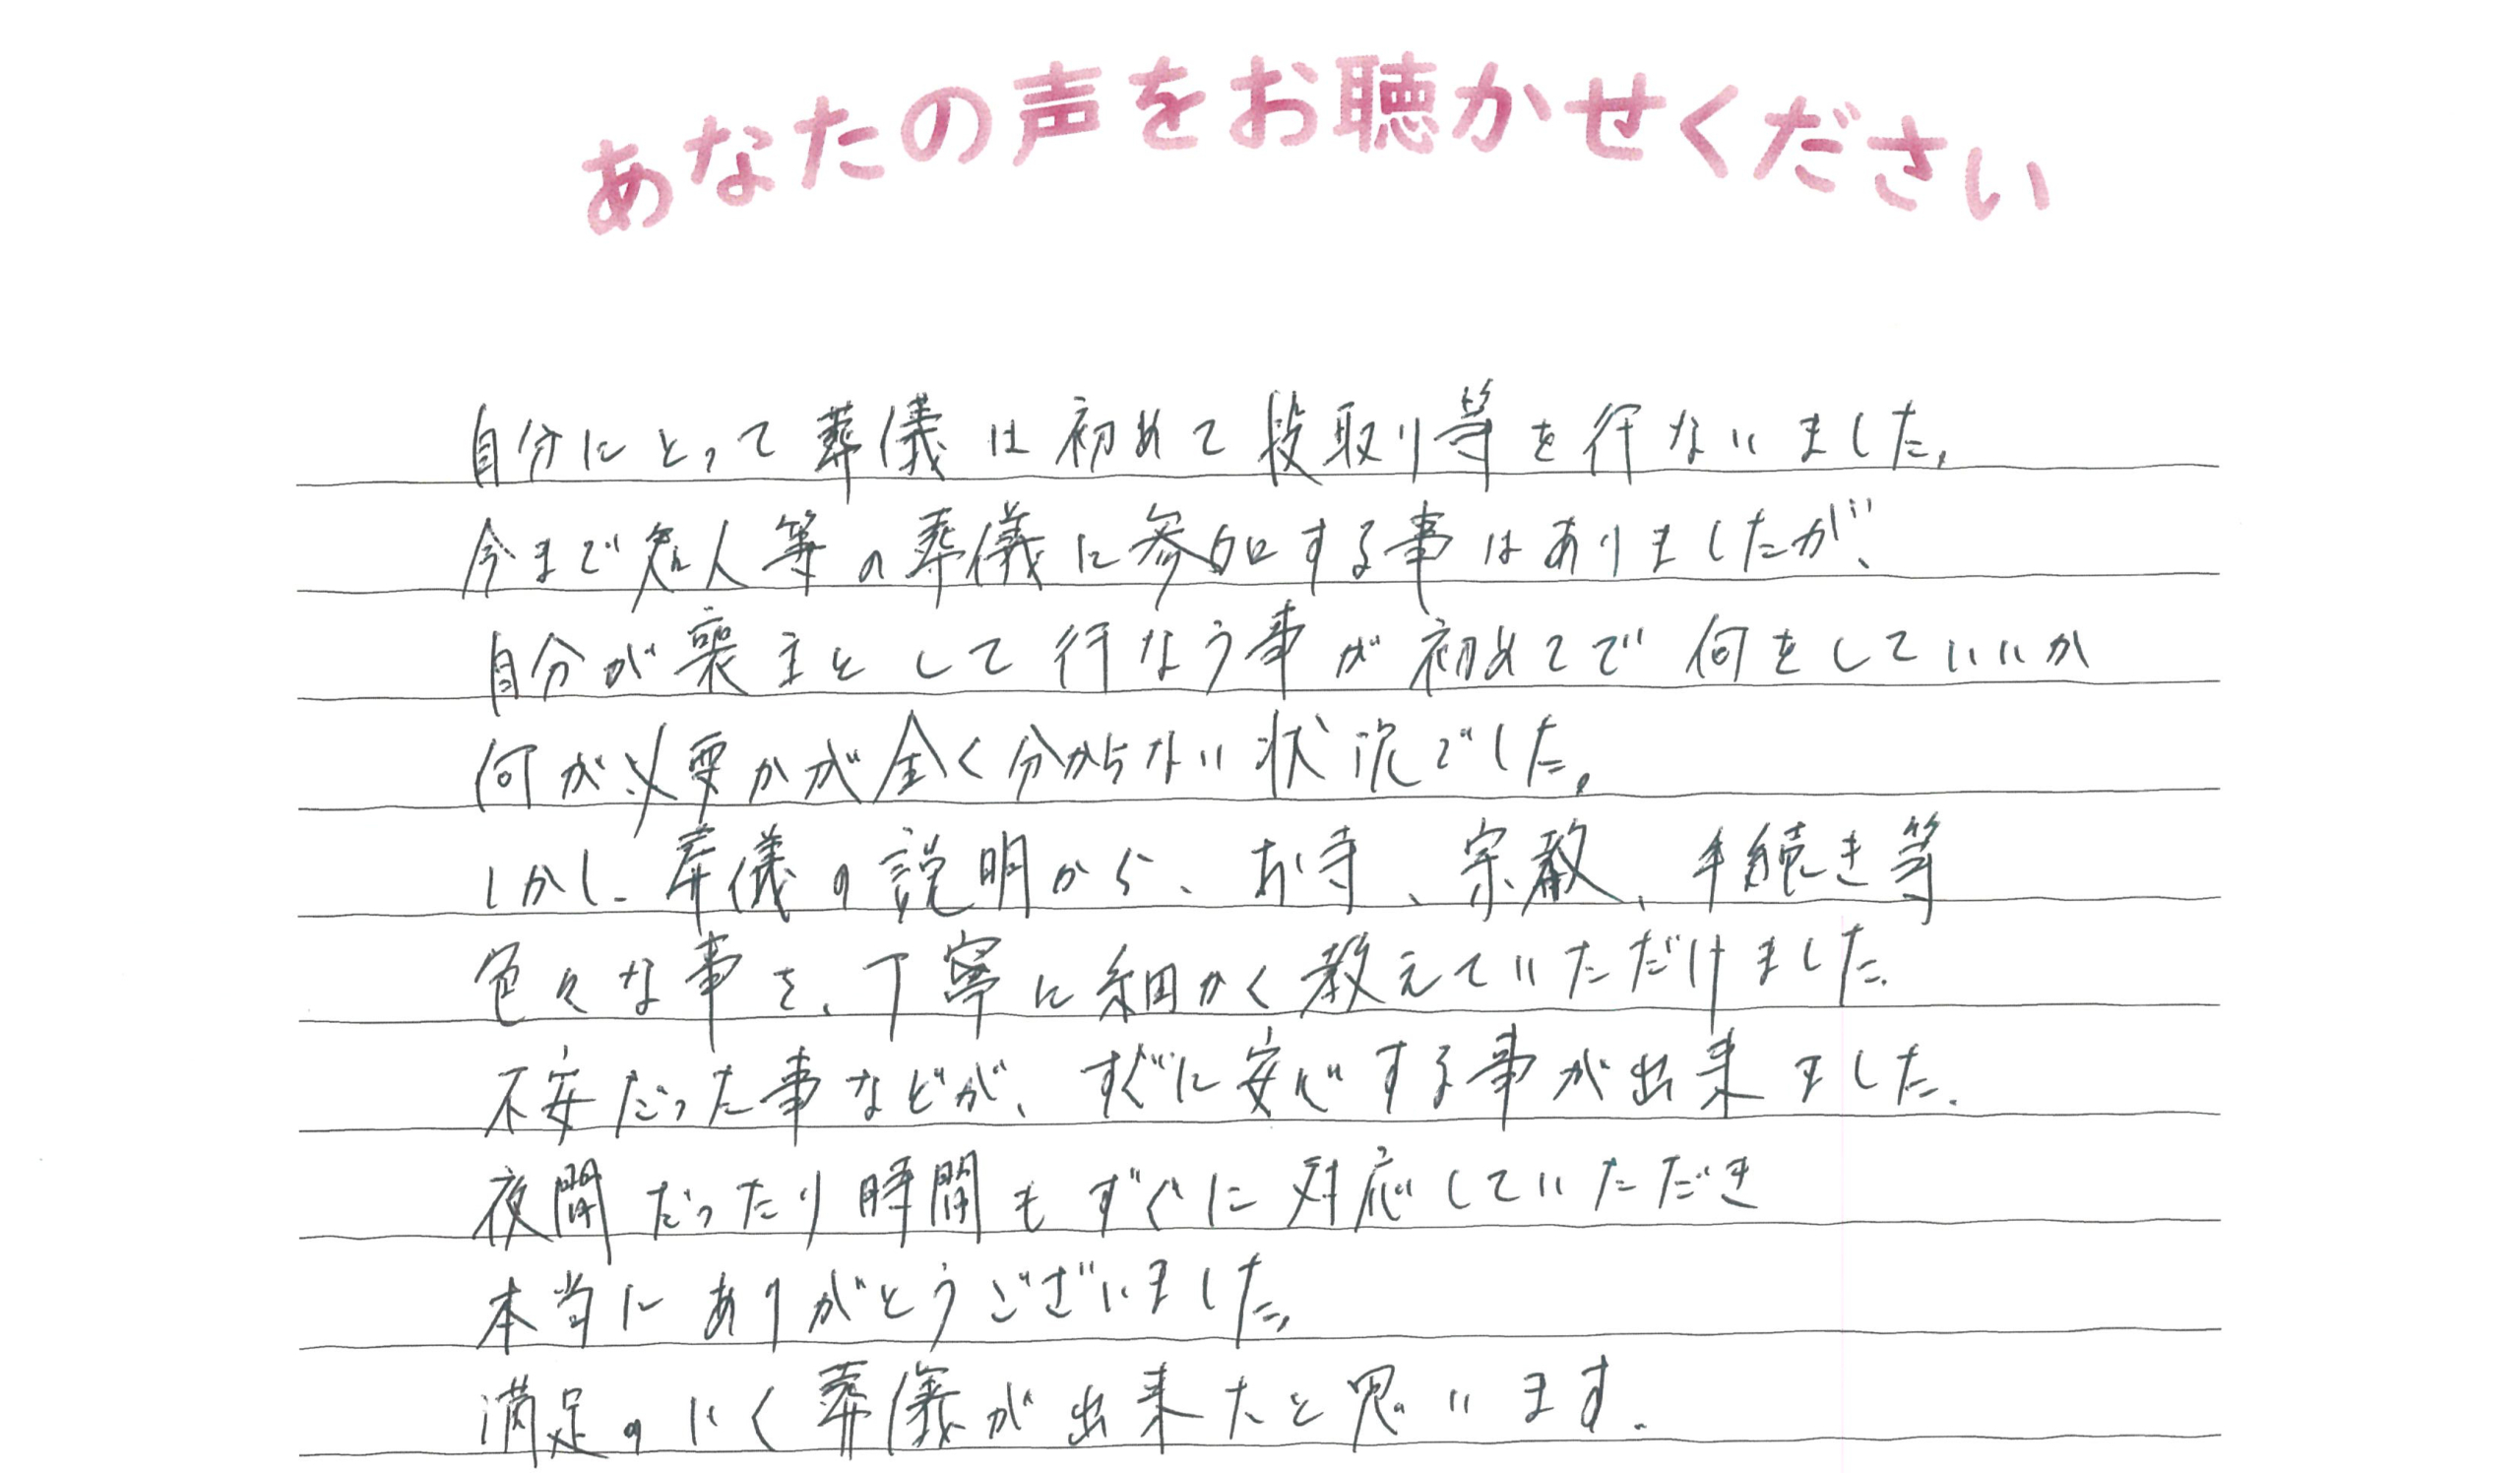 あなたの声をお聴かせください
自分にとって葬儀は初めて段取り等を行ないました。
今まで知人等の葬儀に参加する事はありましたが、
自分が喪主として行なう事が初めてで何をしていいか
何が必要かが全く分からない状況でした。
しかし、葬儀の説明から、お寺、宗教、手続き等
色々な事を、丁寧に細かく教えていただけました。
不安だった事などが、すぐに安心する事が出来ました。
夜間だったり時間もすぐに対応していただき
本当にありがとうございました。
満足のいく葬儀が出来たと思います。